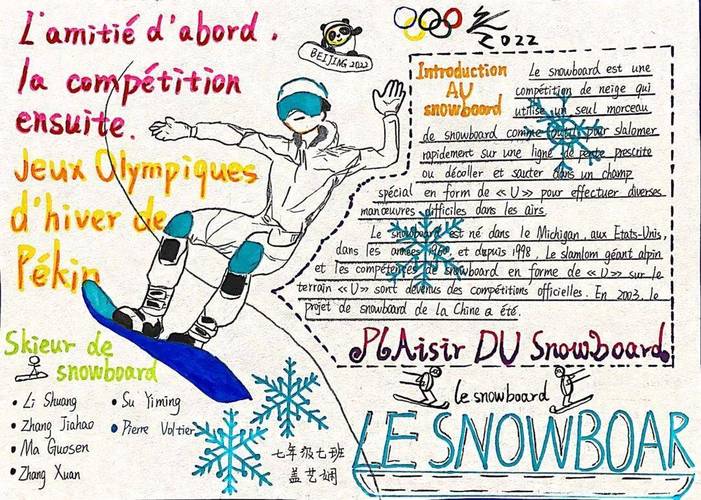 L'amitié d'abord,
la compétition
ensuite.
Jeux Olympiques
d'hiver de
Pékin
BEIJING 2022
2022
Introduction
AU
snowboard
Le snowboard est une
compétition de neige qui
utilise un seul morceau
de snowboard comme outil pour slalomer
rapidement sur une ligne de pente prescrite
ou décoller et sauter dans un champ
spécial en forme de «U» pour effectuer diverses
manœuvres difficiles dans les airs.
Le snowboard est né dans le Michigan, aux Etats-Unis,
dans les années 1960, et depuis 1998, Le slamlom géant alpin
et les compétences de snowboard en forme de «U» sur le
terrain «U» sont devenus des compétitions officielles. En 2003, le
projet de snowboard de La Chine a été.
PLAisir DU Snowboard
Skieur de
snowboard
• Li Shuang
• Zhang Jiahao
• Ma Guosen
• Zhang Xuan
• Su Yiming
• Pierre Voltier
七年级七班
盖艺娴
le snowboard
LE SNOWBOAR